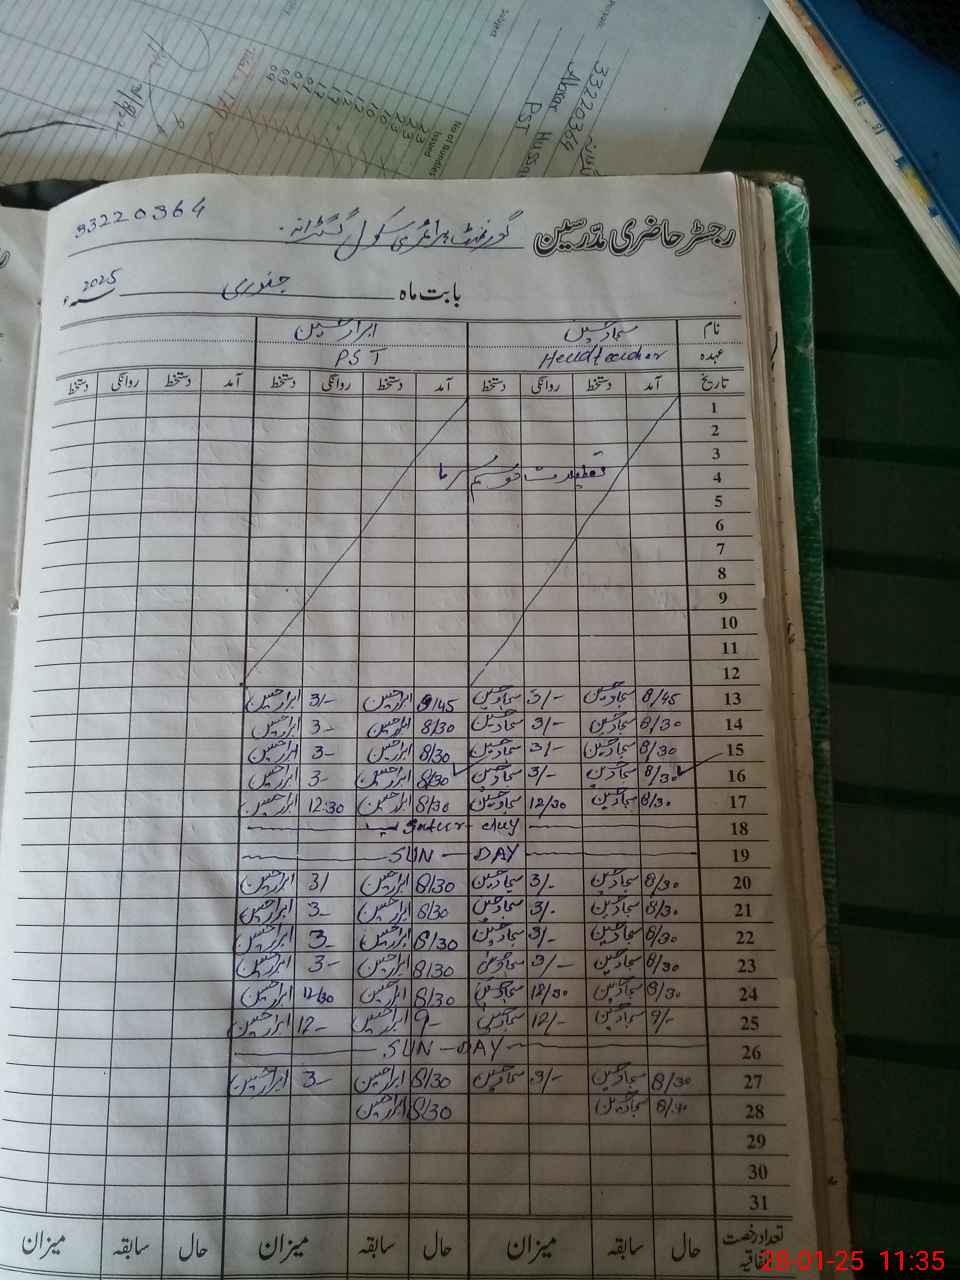 33220364
Abrar
PST
No of Bundles
Issued
33220364
رجسٹر حاضری مدرسین گورنمنٹ پرائمری سکول
بابت ماہ جنوری 2025ء
نام سجاد حسین ابرار حسین
عہدہ Headteacher PST
تاریخ آمد دستخط روانگی دستخط آمد دستخط روانگی دستخط آمد دستخط روانگی دستخط
1
2
3
4 تعطیلات موسم سرما
5
6
7
8
9
10
11
12
13 8/45 سجاد حسین 3/- سجاد حسین 8/45 ابرار حسین 3/- ابرار حسین
14 8/30 سجاد حسین 3/- سجاد حسین 8/30 ابرار حسین 3- ابرار حسین
15 8/30 سجاد حسین 3/- سجاد حسین 8/30 ابرار حسین 3- ابرار حسین
16 8/30 سجاد حسین 3/- سجاد حسین 8/30 ابرار حسین 3- ابرار حسین
17 8/30 سجاد حسین 12/30 سجاد حسین 8/30 ابرار حسین 12:30 ابرار حسین
18 Satur-day
19 SUN-DAY
20 8/30 سجاد حسین 3/- سجاد حسین 8/30 ابرار حسین 3/ ابرار حسین
21 8/30 سجاد حسین 3/- سجاد حسین 8/30 ابرار حسین 3- ابرار حسین
22 8/30 سجاد حسین 3/- سجاد حسین 8/30 ابرار حسین 3- ابرار حسین
23 8/30 سجاد حسین 3/- سجاد حسین 8/30 ابرار حسین 3- ابرار حسین
24 8/30 سجاد حسین 12/30 سجاد حسین 8/30 ابرار حسین 12/30 ابرار حسین
25 9/- سجاد حسین 12/- سجاد حسین 9- ابرار حسین 12- ابرار حسین
26 SUN-DAY
27 8/30 سجاد حسین 3/- سجاد حسین 8/30 ابرار حسین 3- ابرار حسین
28 8/30 سجاد حسین 8/30 ابرار حسین
29
30
31
تعداد رخصت اتفاقیہ حال سابقہ میزان حال سابقہ میزان حال سابقہ میزان
28-01-25 11:35